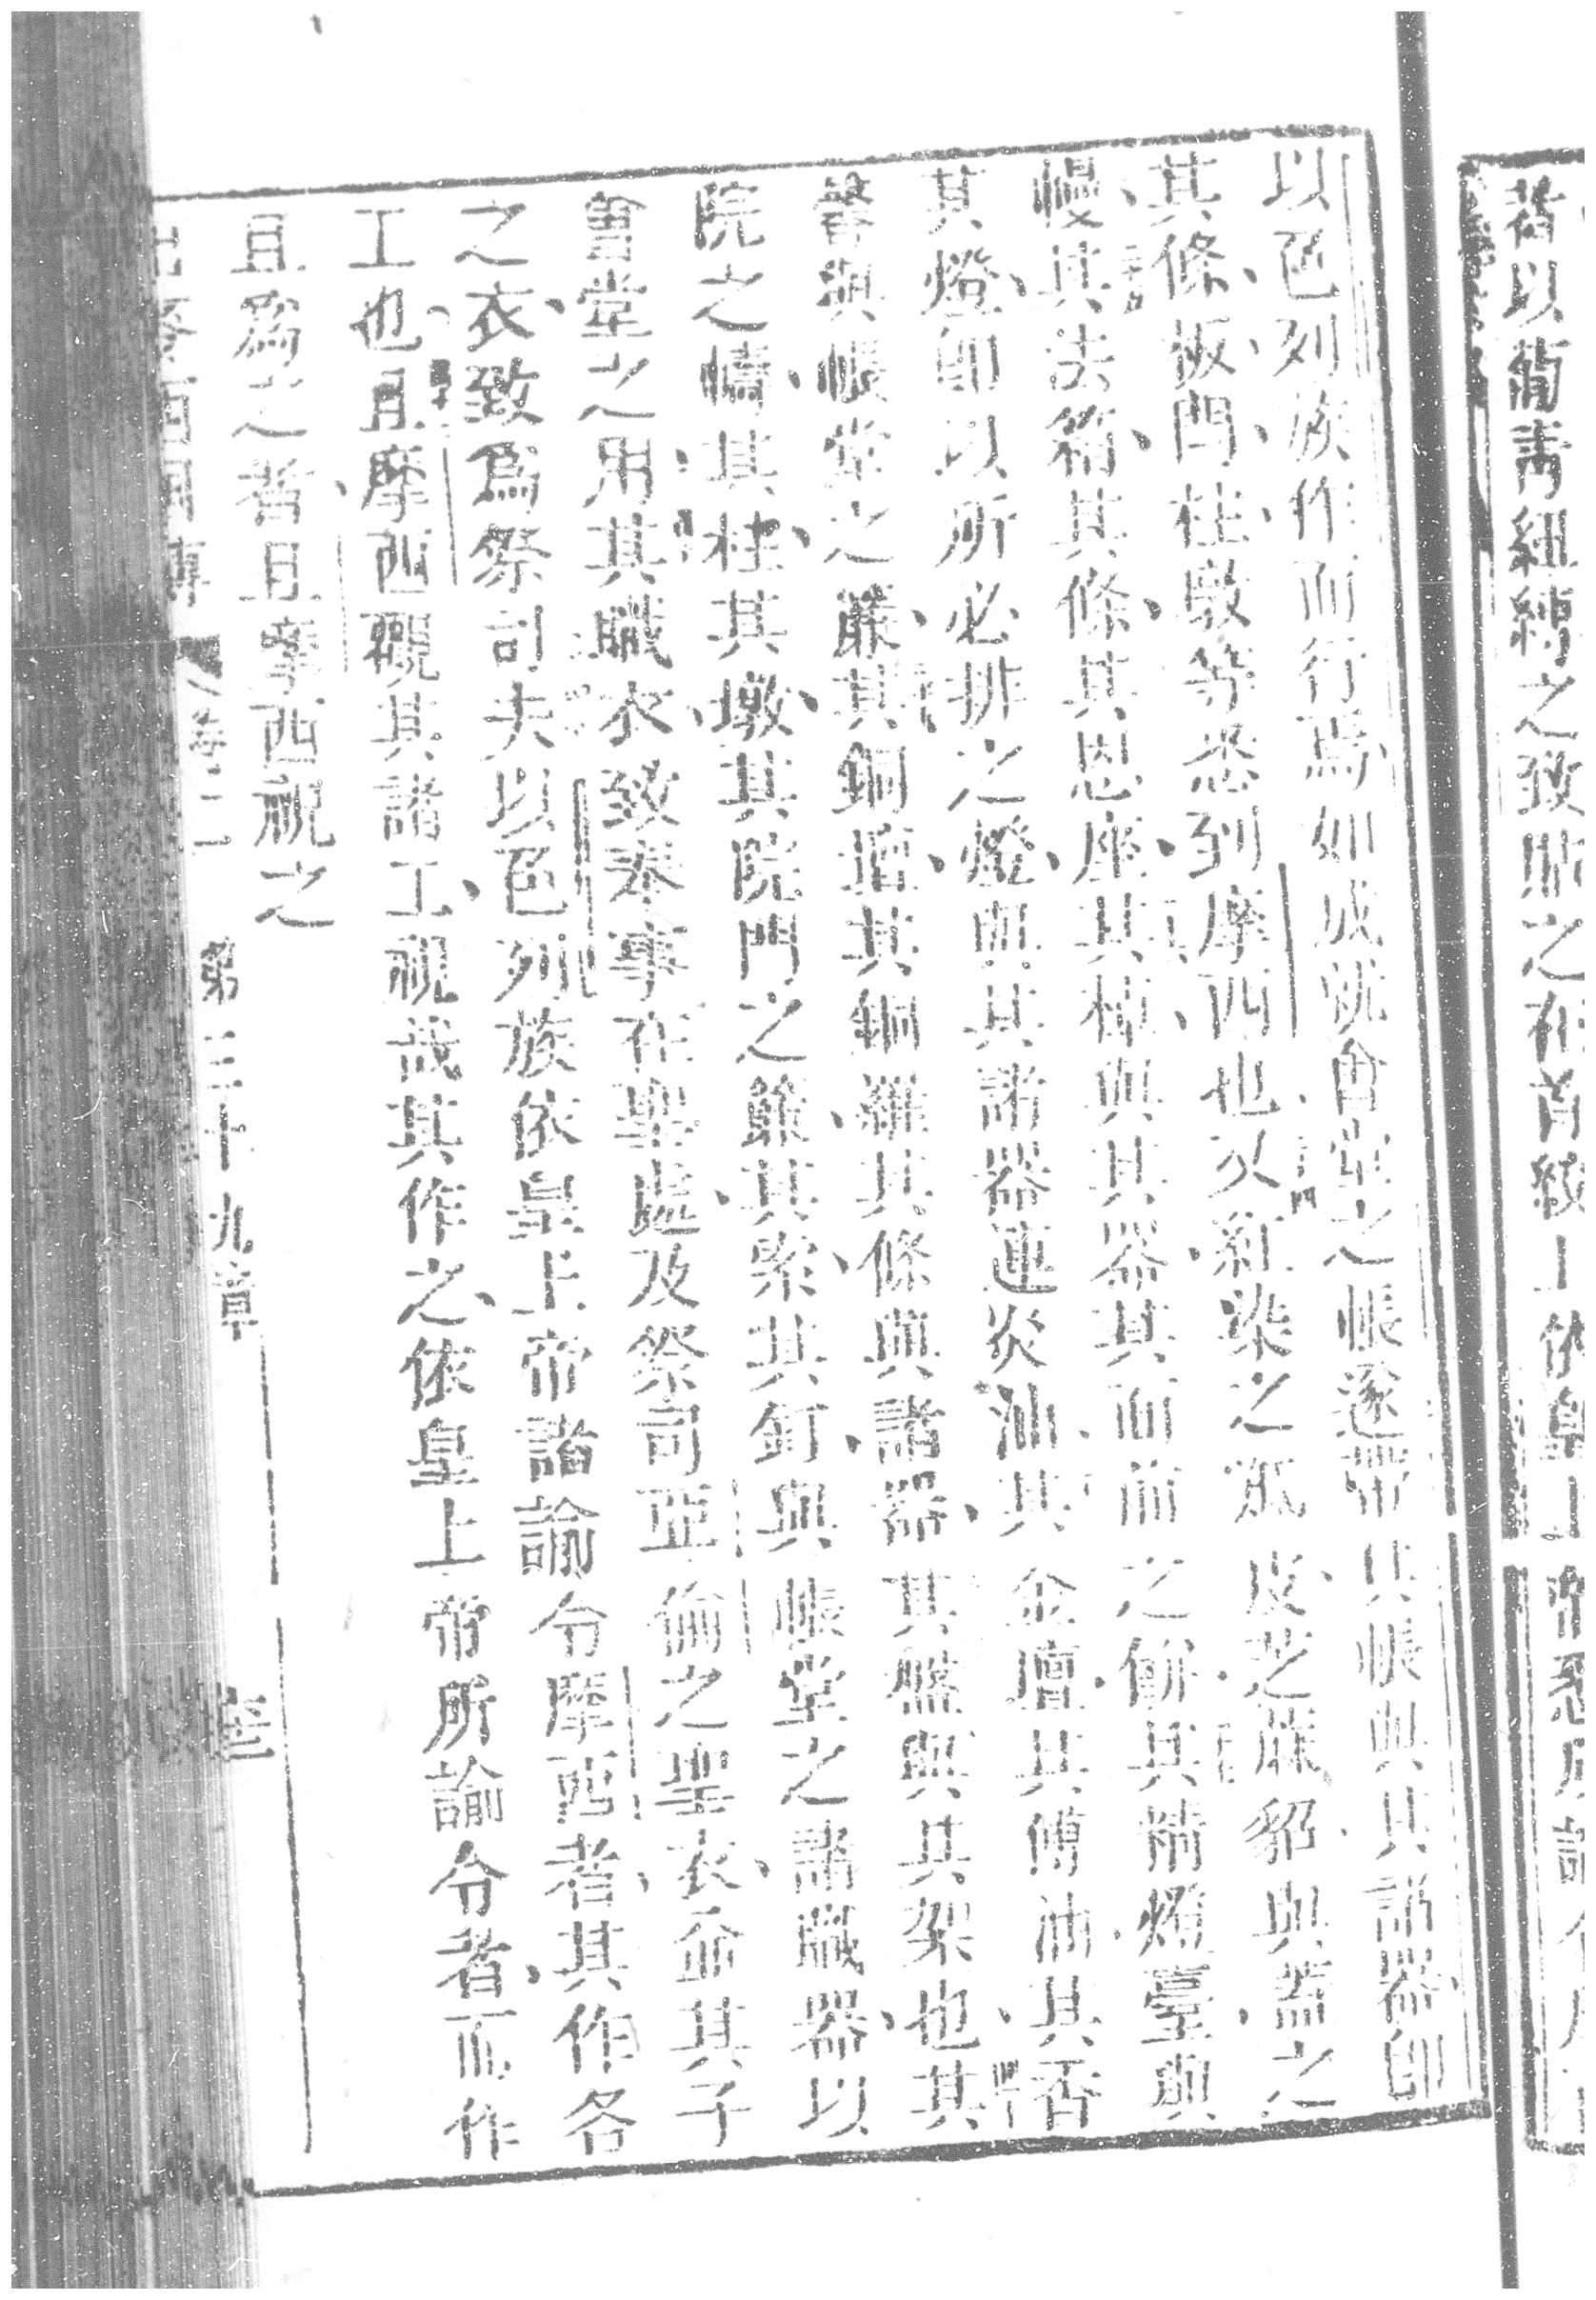 者以葡青紐縛之致貼之在首綾上依皇上帝
以色列族作而行焉如成就會堂之帳遂帶其帳與其諸器卽
其條板閂柱墩等悉列摩西也又紅染之羝皮芝蔴貂與蓋之
幔其法箱其條其恩座其檯與其器其面前之餅其精燈臺與
其燈卽以所必排之燈與其諸器連炎油其金壇其傅油其香
馨與帳堂之簾其銅壇其銅羅其條與諸器其盤與其架也其
院之幬其柱其墩其院門之簾其索其釘與帳堂之諸職器以
會堂之用其職衣致奉事在聖處及祭司亞倫之聖衣並其子
之衣致爲祭司夫以色列族依皇上帝諭令摩西者其作各
工也且摩西觀其諸工視哉其作之依皇上帝所諭令者而作
且爲之者且摩西祝之
第三十九章